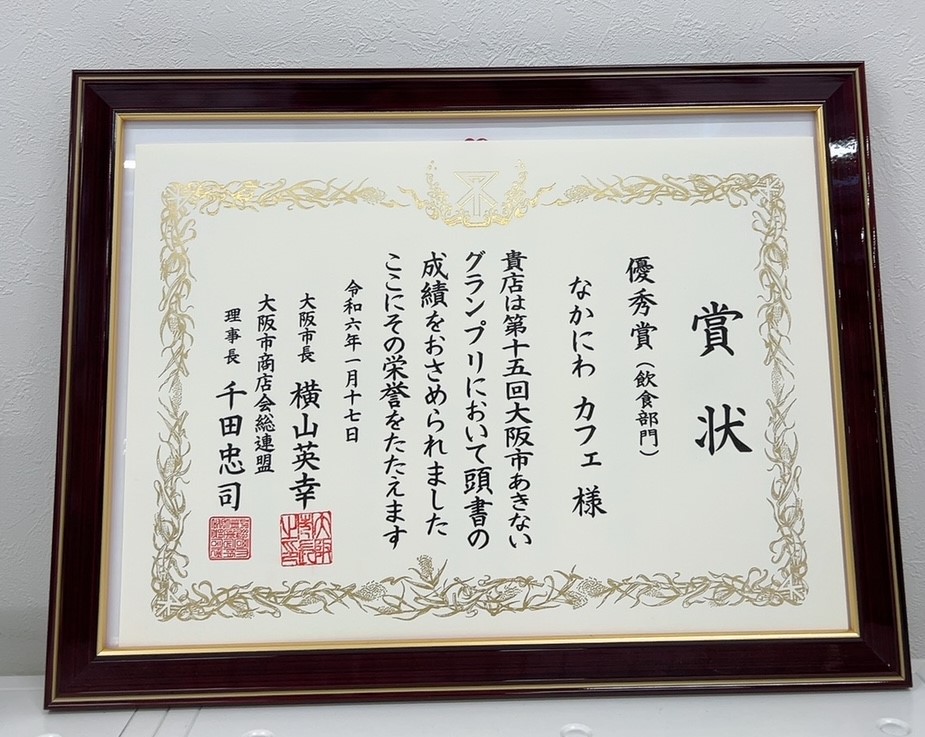 賞状
優秀賞(飲食部門)
なかにわ カフェ 様
貴店は第十五回大阪市あきない
グランプリにおいて頭書の
成績をおさめられました
ここにその栄誉をたたえます
令和六年一月十七日
大阪市長 横山英幸
大阪市商店会総連盟
理事長 千田忠司